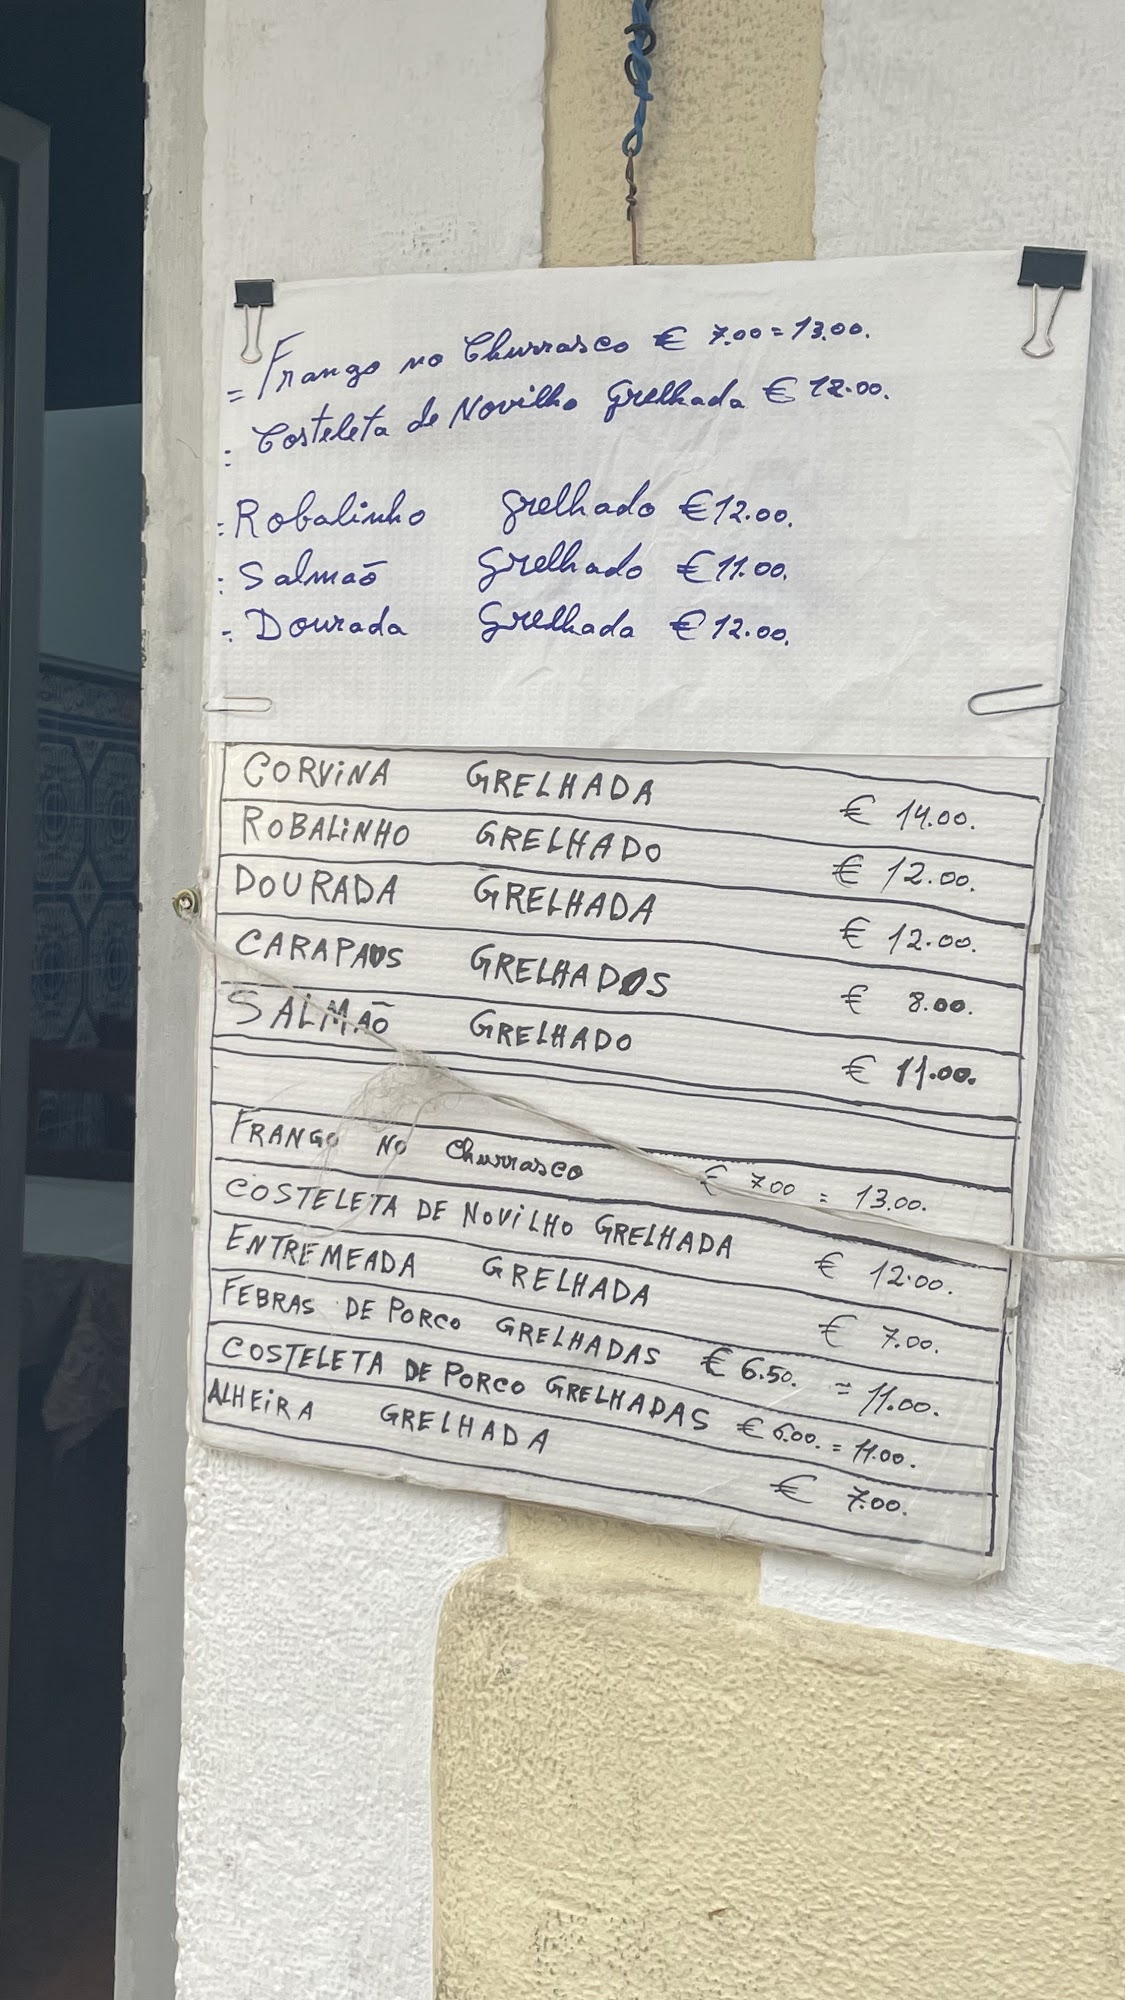 = Frango no Churrasco € 7.00 = 13.00.
= Costeleta de Novilho Grelhada € 12.00.
= Robalinho grelhado € 12.00.
= Salmão Grelhado € 11.00.
= Dourada Grelhada € 12.00.
CORVINA GRELHADA € 14.00.
ROBALINHO GRELHADO € 12.00.
DOURADA GRELHADA € 12.00.
CARAPAUS GRELHADOS € 8.00.
SALMÃO GRELHADO € 11.00.
FRANGO NO Churrasco € 7.00 = 13.00.
COSTELETA DE NOVILHO GRELHADA € 12.00.
ENTREMEADA GRELHADA € 7.00.
FEBRAS DE PORCO GRELHADAS € 6.50. = 11.00.
COSTELETA DE PORCO GRELHADAS € 6.00. = 11.00.
ALHEIRA GRELHADA € 7.00.